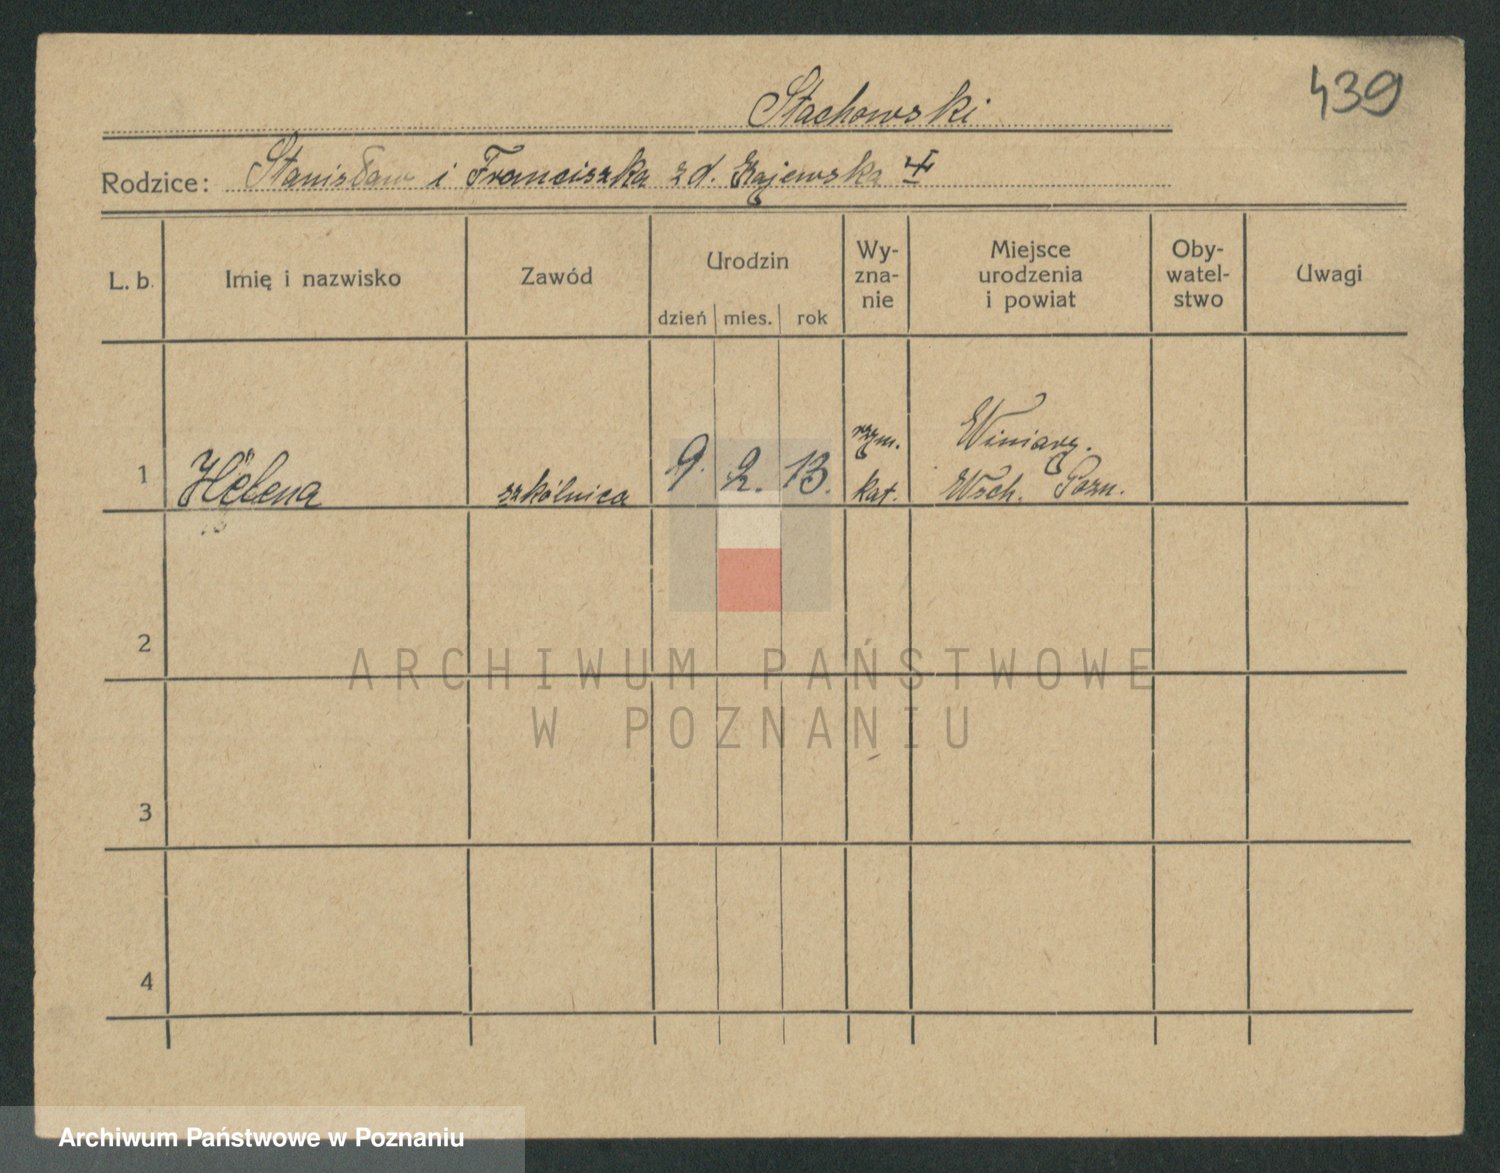 439
Stachowski
Rodzice: Stanisław i Franciszka z d. Gajewska
L. b.
Imię i nazwisko
Zawód
Urodzin
dzień mies. rok
Wy-
zna-
nie
Miejsce
urodzenia
i powiat
Oby-
watel-
stwo
Uwagi
1 Helena szkólnica 9. 2. 13. rzym. kat. Winiary. Wsch. Pozn.
2
3
4
ARCHIWUM PAŃSTWOWE
W POZNANIU
Archiwum Państwowe w Poznaniu